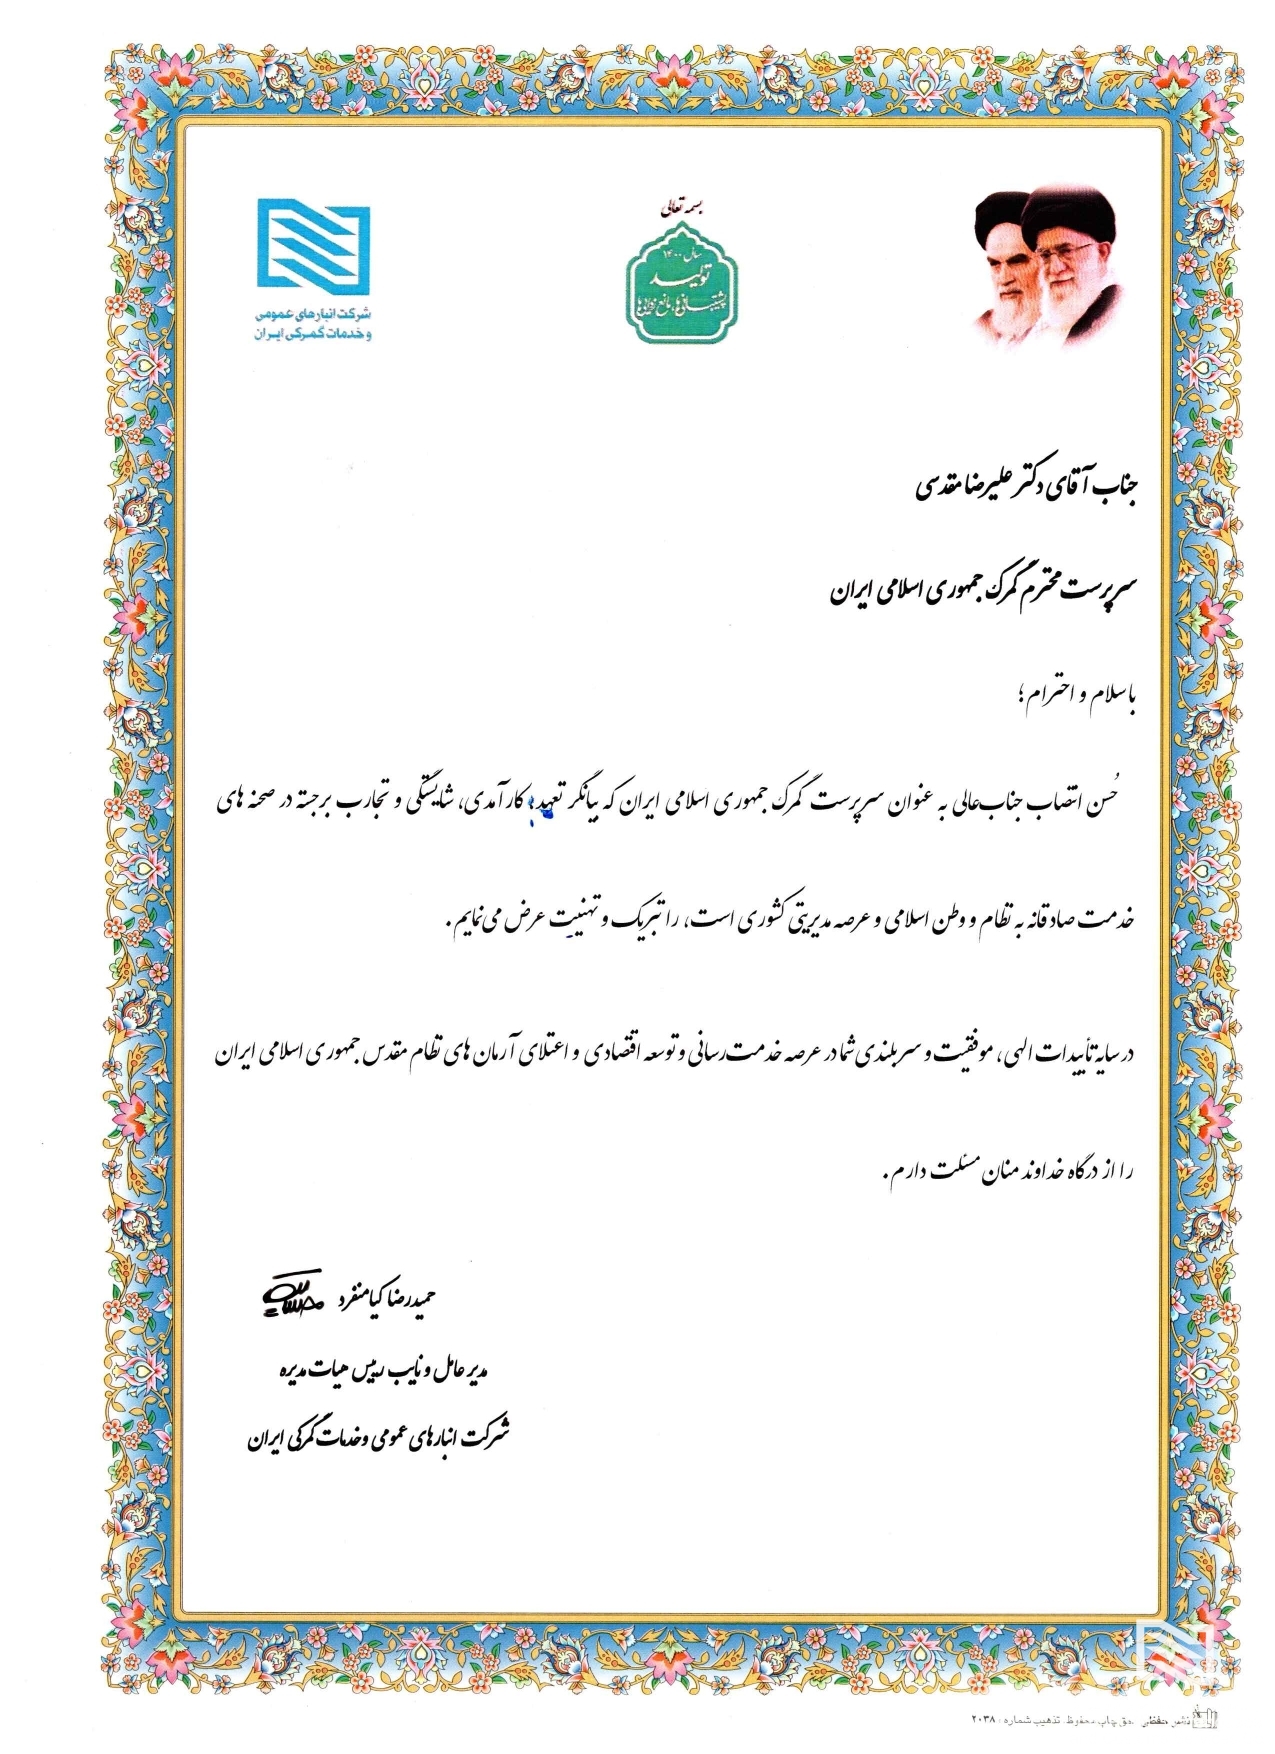 بسمه تعالی
سال ۱۴۰۰
تولید
پشتیبانی‌ها، مانع‌زدایی‌ها
شرکت انبارهای عمومی
و خدمات گمرکی ایران
جناب آقای دکتر علیرضا مقدسی
سرپرست محترم گمرک جمهوری اسلامی ایران
باسلام و احترام؛
حُسن انتصاب جناب‌عالی به عنوان سرپرست گمرک جمهوری اسلامی ایران که بیانگر تعهد، کارآمدی، شایستگی و تجارب برجسته در صحنه های
خدمت صادقانه به نظام و وطن اسلامی و عرصه مدیریتی کشوری است، را تبریک و تهنیت عرض می‌نمایم.
در سایه تأییدات الهی، موفقیت و سربلندی شما در عرصه خدمت‌رسانی و توسعه اقتصادی و اعتلای آرمان های نظام مقدس جمهوری اسلامی ایران
را از درگاه خداوند منان مسئلت دارم.
حمیدرضا کیامنفرد
مدیر عامل و نایب رییس هیات مدیره
شرکت انبارهای عمومی و خدمات گمرکی ایران
نشر حفظی حق چاپ محفوظ تذهیب شماره: ۲۰۳۸